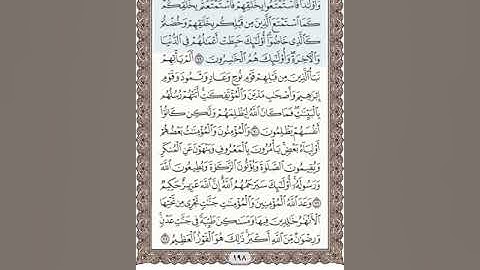 وَأَوْلَٰدًا فَٱسْتَمْتَعُوا۟ بِخَلَٰقِهِمْ فَٱسْتَمْتَعْتُم بِخَلَٰقِكُمْ
كَمَا ٱسْتَمْتَعَ ٱلَّذِينَ مِن قَبْلِكُم بِخَلَٰقِهِمْ وَخُضْتُمْ
كَٱلَّذِى خَاضُوٓا۟ أُو۟لَٰٓئِكَ حَبِطَتْ أَعْمَٰلُهُمْ فِى ٱلدُّنْيَا
وَٱلْءَاخِرَةِ وَأُو۟لَٰٓئِكَ هُمُ ٱلْخَٰسِرُونَ ٦٩ أَلَمْ يَأْتِهِمْ
نَبَأُ ٱلَّذِينَ مِن قَبْلِهِمْ قَوْمِ نُوحٍ وَعَادٍ وَثَمُودَ وَقَوْمِ
إِبْرَٰهِيمَ وَأَصْحَٰبِ مَدْيَنَ وَٱلْمُؤْتَفِكَٰتِ أَتَتْهُمْ رُسُلُهُم
بِٱلْبَيِّنَٰتِ فَمَا كَانَ ٱللَّهُ لِيَظْلِمَهُمْ وَلَٰكِن كَانُوٓا۟
أَنفُسَهُمْ يَظْلِمُونَ ٧٠ وَٱلْمُؤْمِنُونَ وَٱلْمُؤْمِنَٰتُ بَعْضُهُمْ
أَوْلِيَآءُ بَعْضٍ يَأْمُرُونَ بِٱلْمَعْرُوفِ وَيَنْهَوْنَ عَنِ ٱلْمُنكَرِ
وَيُقِيمُونَ ٱلصَّلَوٰةَ وَيُؤْتُونَ ٱلزَّكَوٰةَ وَيُطِيعُونَ ٱللَّهَ
وَرَسُولَهُۥٓ أُو۟لَٰٓئِكَ سَيَرْحَمُهُمُ ٱللَّهُ إِنَّ ٱللَّهَ عَزِيزٌ حَكِيمٌ
٧١ وَعَدَ ٱللَّهُ ٱلْمُؤْمِنِينَ وَٱلْمُؤْمِنَٰتِ جَنَّٰتٍ تَجْرِى مِن تَحْتِهَا
ٱلْأَنْهَٰرُ خَٰلِدِينَ فِيهَا وَمَسَٰكِنَ طَيِّبَةً فِى جَنَّٰتِ عَدْنٍ
وَرِضْوَٰنٌ مِّنَ ٱللَّهِ أَكْبَرُ ذَٰلِكَ هُوَ ٱلْفَوْزُ ٱلْعَظِيمُ ٧٢
١٩٨